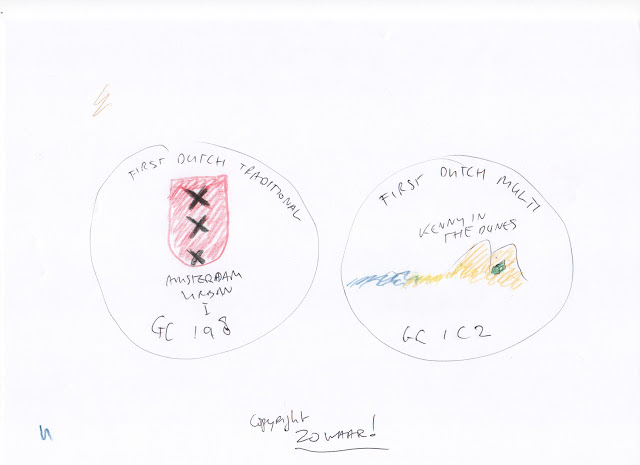 FIRST DUTCH TRADITIONAL
AMSTERDAM
URBAN
I
GC 198
FIRST DUTCH MULTI
KENNY IN
THE DUNES
GC 1C2
Copyright
ZOWAAR!